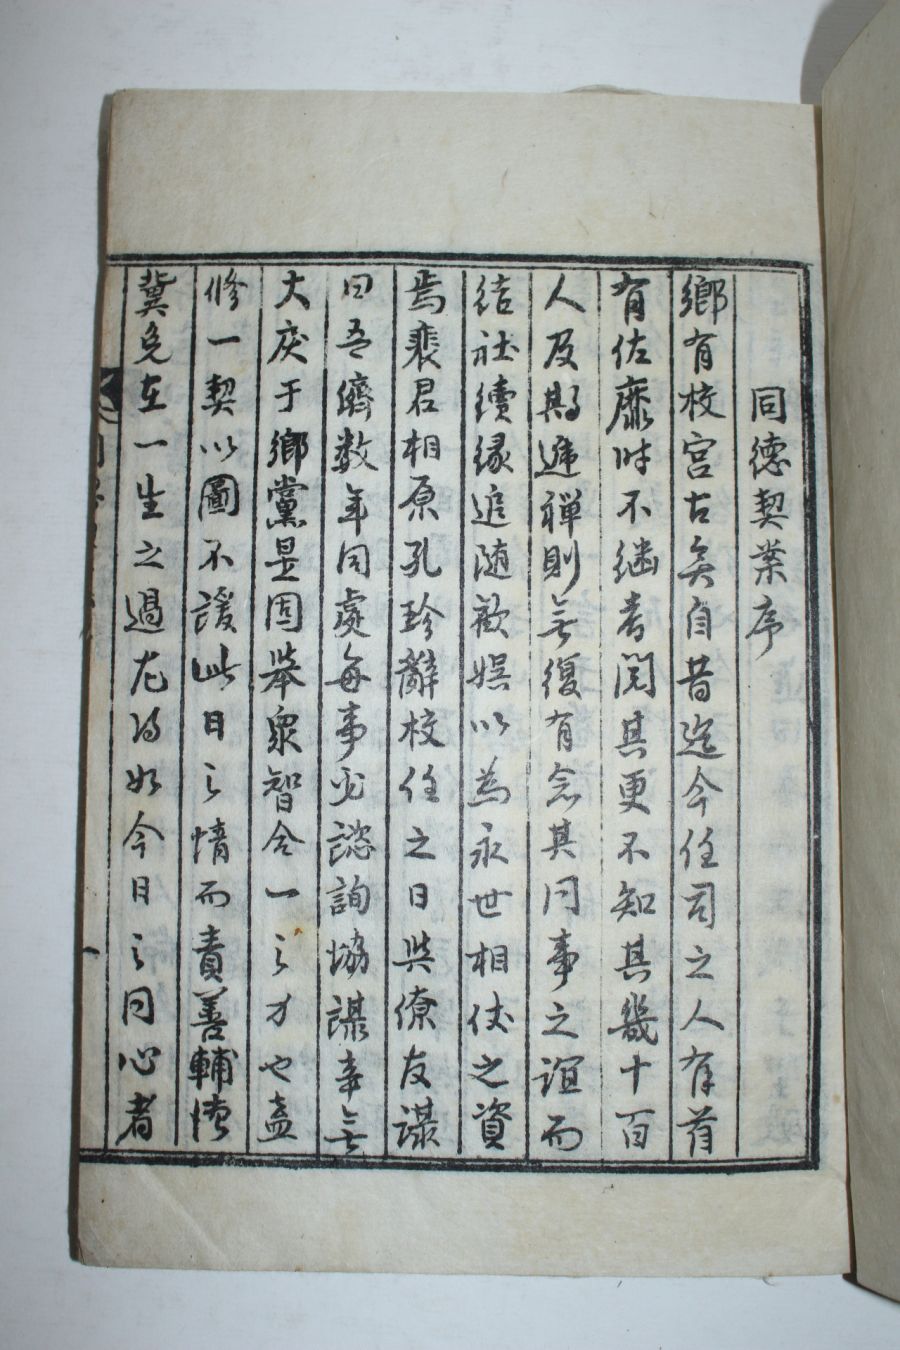 同德契案序
鄉有校宮古矣自昔迄今任司之人有首
有佐靡時不継者閱其更不知其幾十百
人及期遞禪則無復有念其同事之誼而
結社續緣追随歡娛以為永世相仗之資
焉裴君相原孔珍辭校任之日與僚友謀
曰吾儕数年同處每事必諮詢協謀幸無
大戾于鄉黨是固萃衆智合一之力也盍
修一契以圖不諼此日之情而責善輔
冀免在一生之過尤得如今日之同心者
一